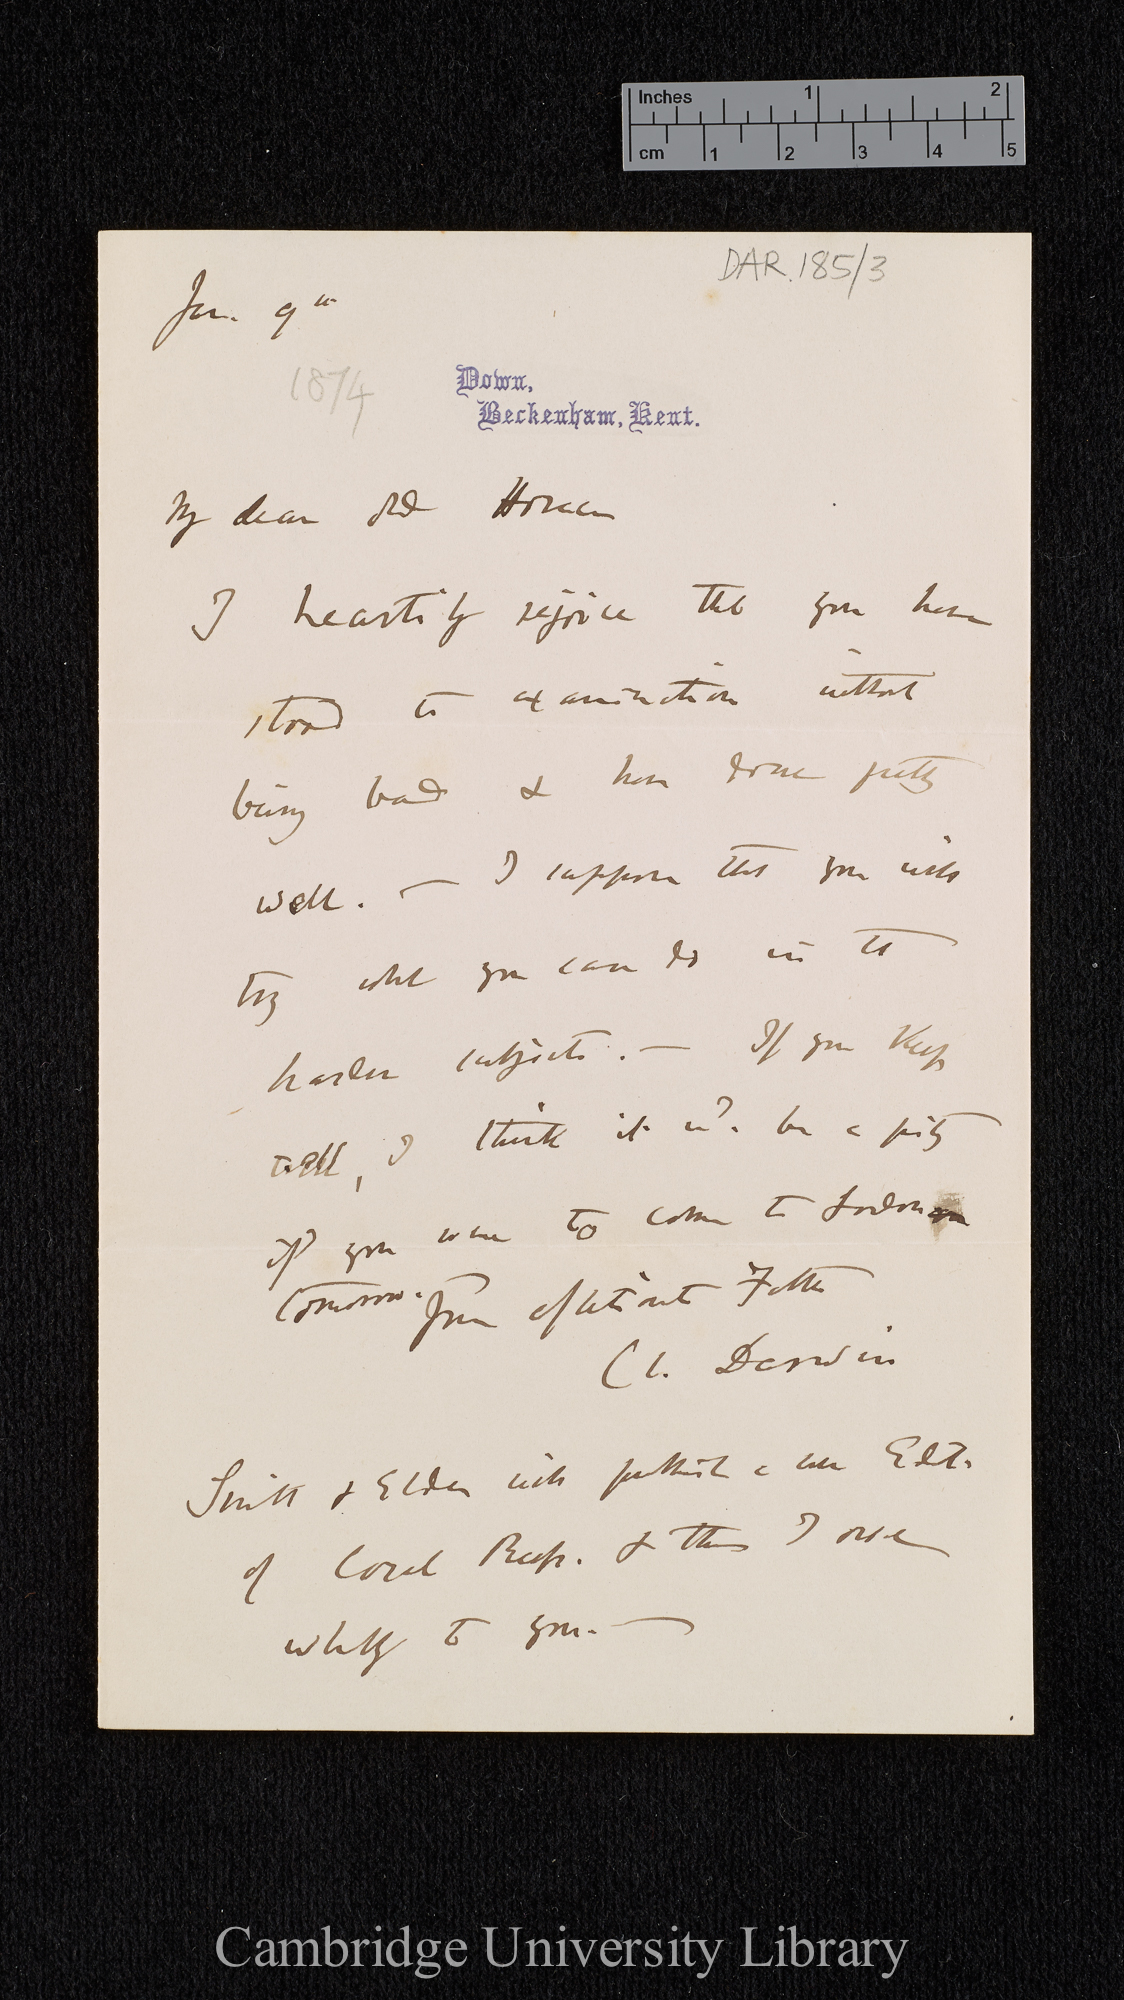 Inches 1 2
cm 1 2 3 4 5
DAR.185/3
Jan. 9th
1874
Down,
Beckenham, Kent.
My dear old Horace
I heartily rejoice that you have
stood the examination without
being bad & have done pretty
well. — I suppose that you will
try what you can do in the
harder subjects. — If you keep
well, I think it wd. be a pity
if you were to come to London
tomorrow. Your affectionate Father
Ch. Darwin
Smith & Elder will publish a new Edit.
of Coral Reefs. & this I owe
wholly to you. —
Cambridge University Library